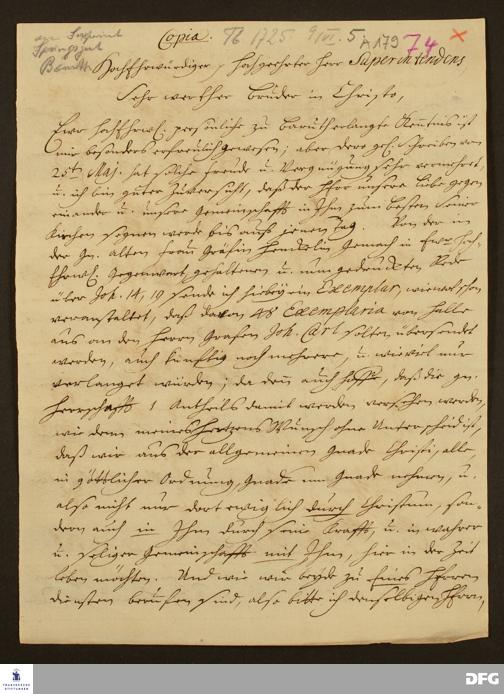 Copia.
Tb 1725. 9/VI. 5 A179 74 x
an Superint
Springsgut
Baruth
HochEhrwürdiger, Hochgeehrter Herr Superintendens
Sehr werther Bruder in Christo,
Ewer HochEhrw. persönliche zu Baruth erlangte Kentnis ist
mir besonders erfreulich gewesen; aber dero geh. Schreiben vom
25ten Maj. hat solche Freude u. Vergnügung sehr vermehret,
u. ich bin guter Zuversicht, daß der Herr unsere Liebe gegen
einander u. unsere Gemeinschafft in Ihm zum besten seiner
Kirchen segnen werde bis auf jenen Tag. Von der in
der gn. alten Frau Gräfin Henckelin Gemach in Ewr Hoch-
Ehrw. Gegenwart gehaltenen u. nun gedruckten Rede
über Joh. 14, 19 sende ich hiebey ein Exemplar, wiewol schon
veranstaltet, daß davon 48 Exemplaria von Halle
aus an den Herrn Grafen Joh. Carl solten übersandt
werden, auch künftig noch mehrere, u. wieviel nur
verlanget würden; da denn auch hoffe, daß die gn.
Herrschafft 1 Antheils damit werden versehen werden,
wie denn meines Hertzens Wunsch ohne Unterscheid ist,
daß wir aus der allgemeinen Gnade Christi, alle,
in göttlicher Ordnung, Gnade um Gnade nehmen, u.
also nicht nur dort ewiglich durch Christum, son-
dern auch in Ihm durch seine Krafft, u. in wahrer
u. seliger Gemeinschafft mit Ihm, hier in der Zeit
leben möchten. Und wie wir beyde zu Eines Herren
Diensten beruffen sind, also bitte ich denselbigen Herrn,
FRANCKESCHE
STIFTUNGEN
DFG